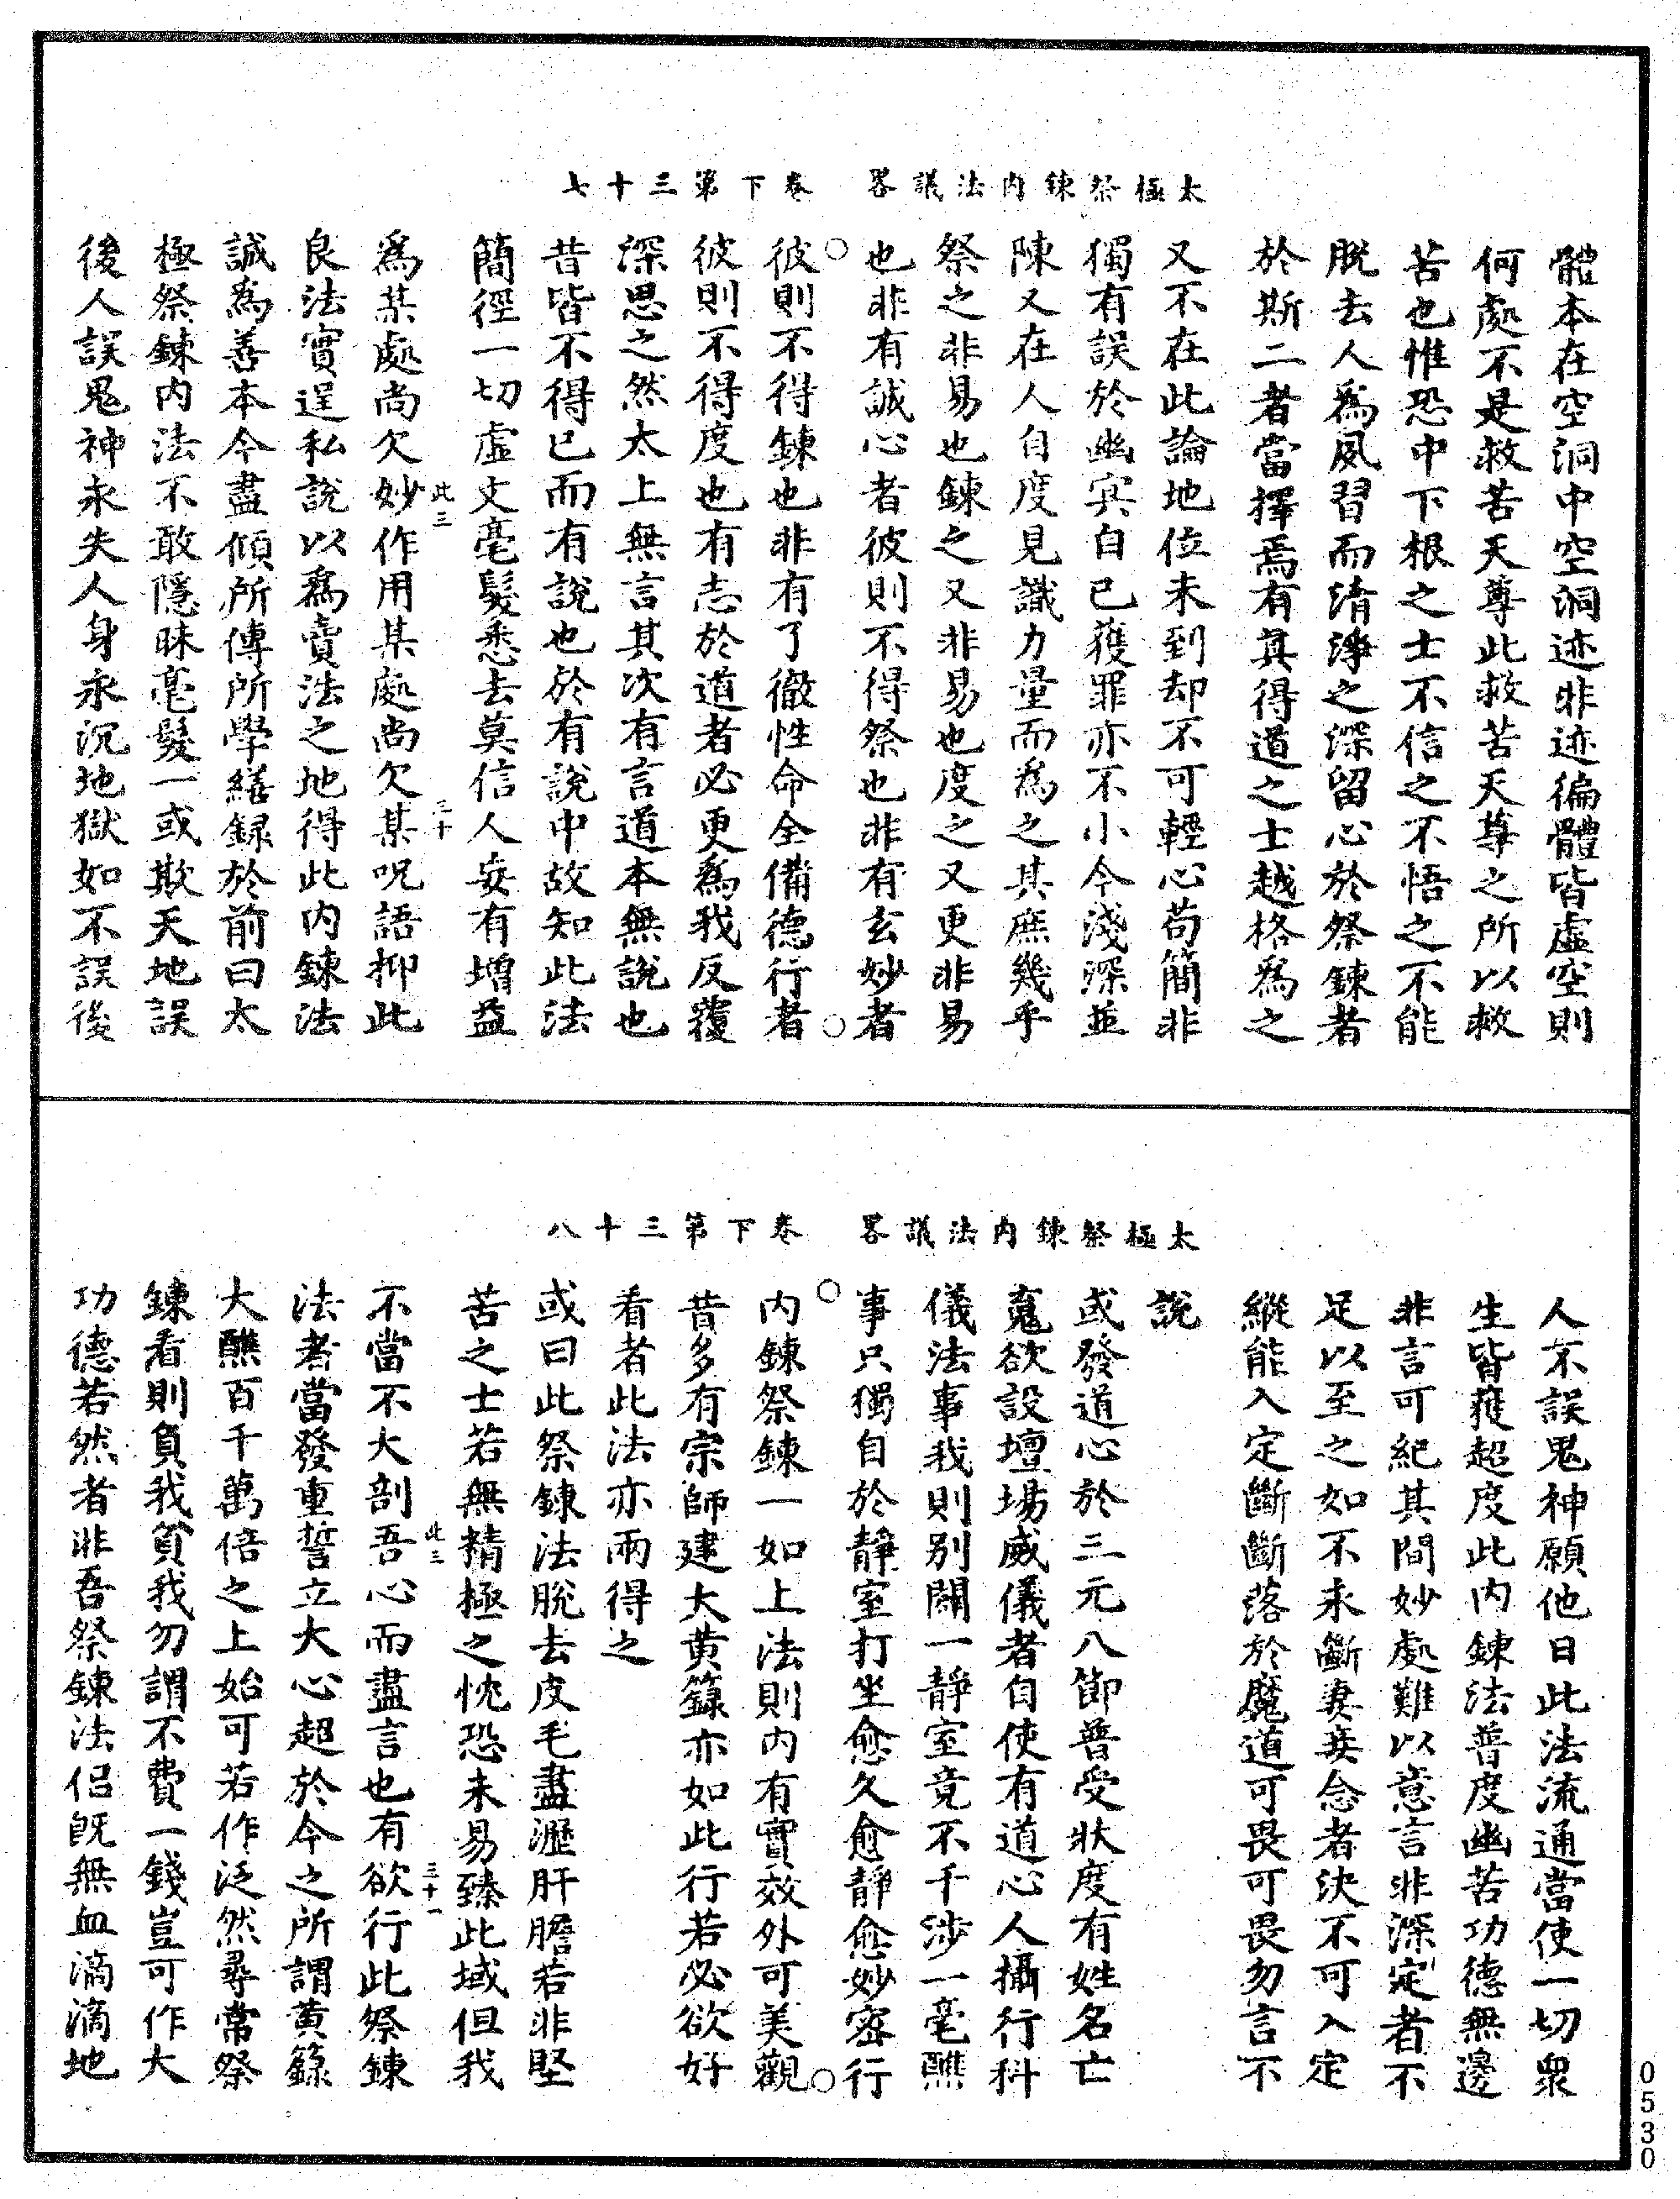 體本在空洞中空洞迹非迹徧體皆虛空則
何處不是救苦天尊此救苦天尊之所以救
苦也惟恐中下根之士不信之不悟之不能
脫去人爲夙習而清淨之深留心於祭鍊者
於斯二者當擇焉有眞得道之士越格爲之
太極祭鍊內法議畧　卷下第三十七
又不在此論地位未到却不可輕心苟簡非
獨有誤於幽冥自已獲罪亦不小今淺深並
陳又在人自度見識力量而爲之其庶幾乎
祭之非易也鍊之又非易也度之又更非易
也非有誠心者彼則不得祭也非有玄妙者
彼則不得鍊也非有了徹性命全備德行者
彼則不得度也有志於道者必更爲我反覆
深思之然太上無言其次有言道本無說也
昔皆不得已而有說也於有說中故知此法
簡徑一切虛文毫髮悉去莫信人妄有增益
此三　三十
爲某處尚欠妙作用某處尚欠某呪語抑此
良法實逞私說以爲賣法之地得此內鍊法
誠爲善本今盡傾所傳所學繕録於前曰太
極祭鍊內法不敢隱昧毫髮一或欺天地誤
後人誤鬼神永失人身永沉地獄如不誤後
人不誤鬼神願他日此法流通當使一切衆
生皆獲超度此內鍊法普度幽苦功德無邊
非言可紀其間妙處難以意言非深定者不
足以至之如不永斷妻妾念者決不可入定
縱能入定斷斷落於魔道可畏可畏勿言不
太極祭鍊內法議畧　卷下第三十八
說
或發道心於三元八節普受狀度有姓名亡
䰟欲設壇場威儀者自使有道心人攝行科
儀法事我則別闢一靜室竟不干涉一毫醮
事只獨自於靜室打坐愈久愈靜愈妙密行
內鍊祭鍊一如上法則內有實效外可美觀
昔多有宗師建大黄籙亦如此行若必欲好
看者此法亦兩得之
或曰此祭鍊法脫去皮毛盡瀝肝膽若非堅
苦之士若無精極之忱恐未易臻此域但我
此三　三十一
不當不大剖吾心而盡言也有欲行此祭鍊
法者當發重誓立大心超於今之所謂黄籙
大醮百千萬倍之上始可若作泛然尋常祭
鍊看則負我負我勿謂不費一錢豈可作大
功德若然者非吾祭鍊法侶旣無血滴滴地
0530